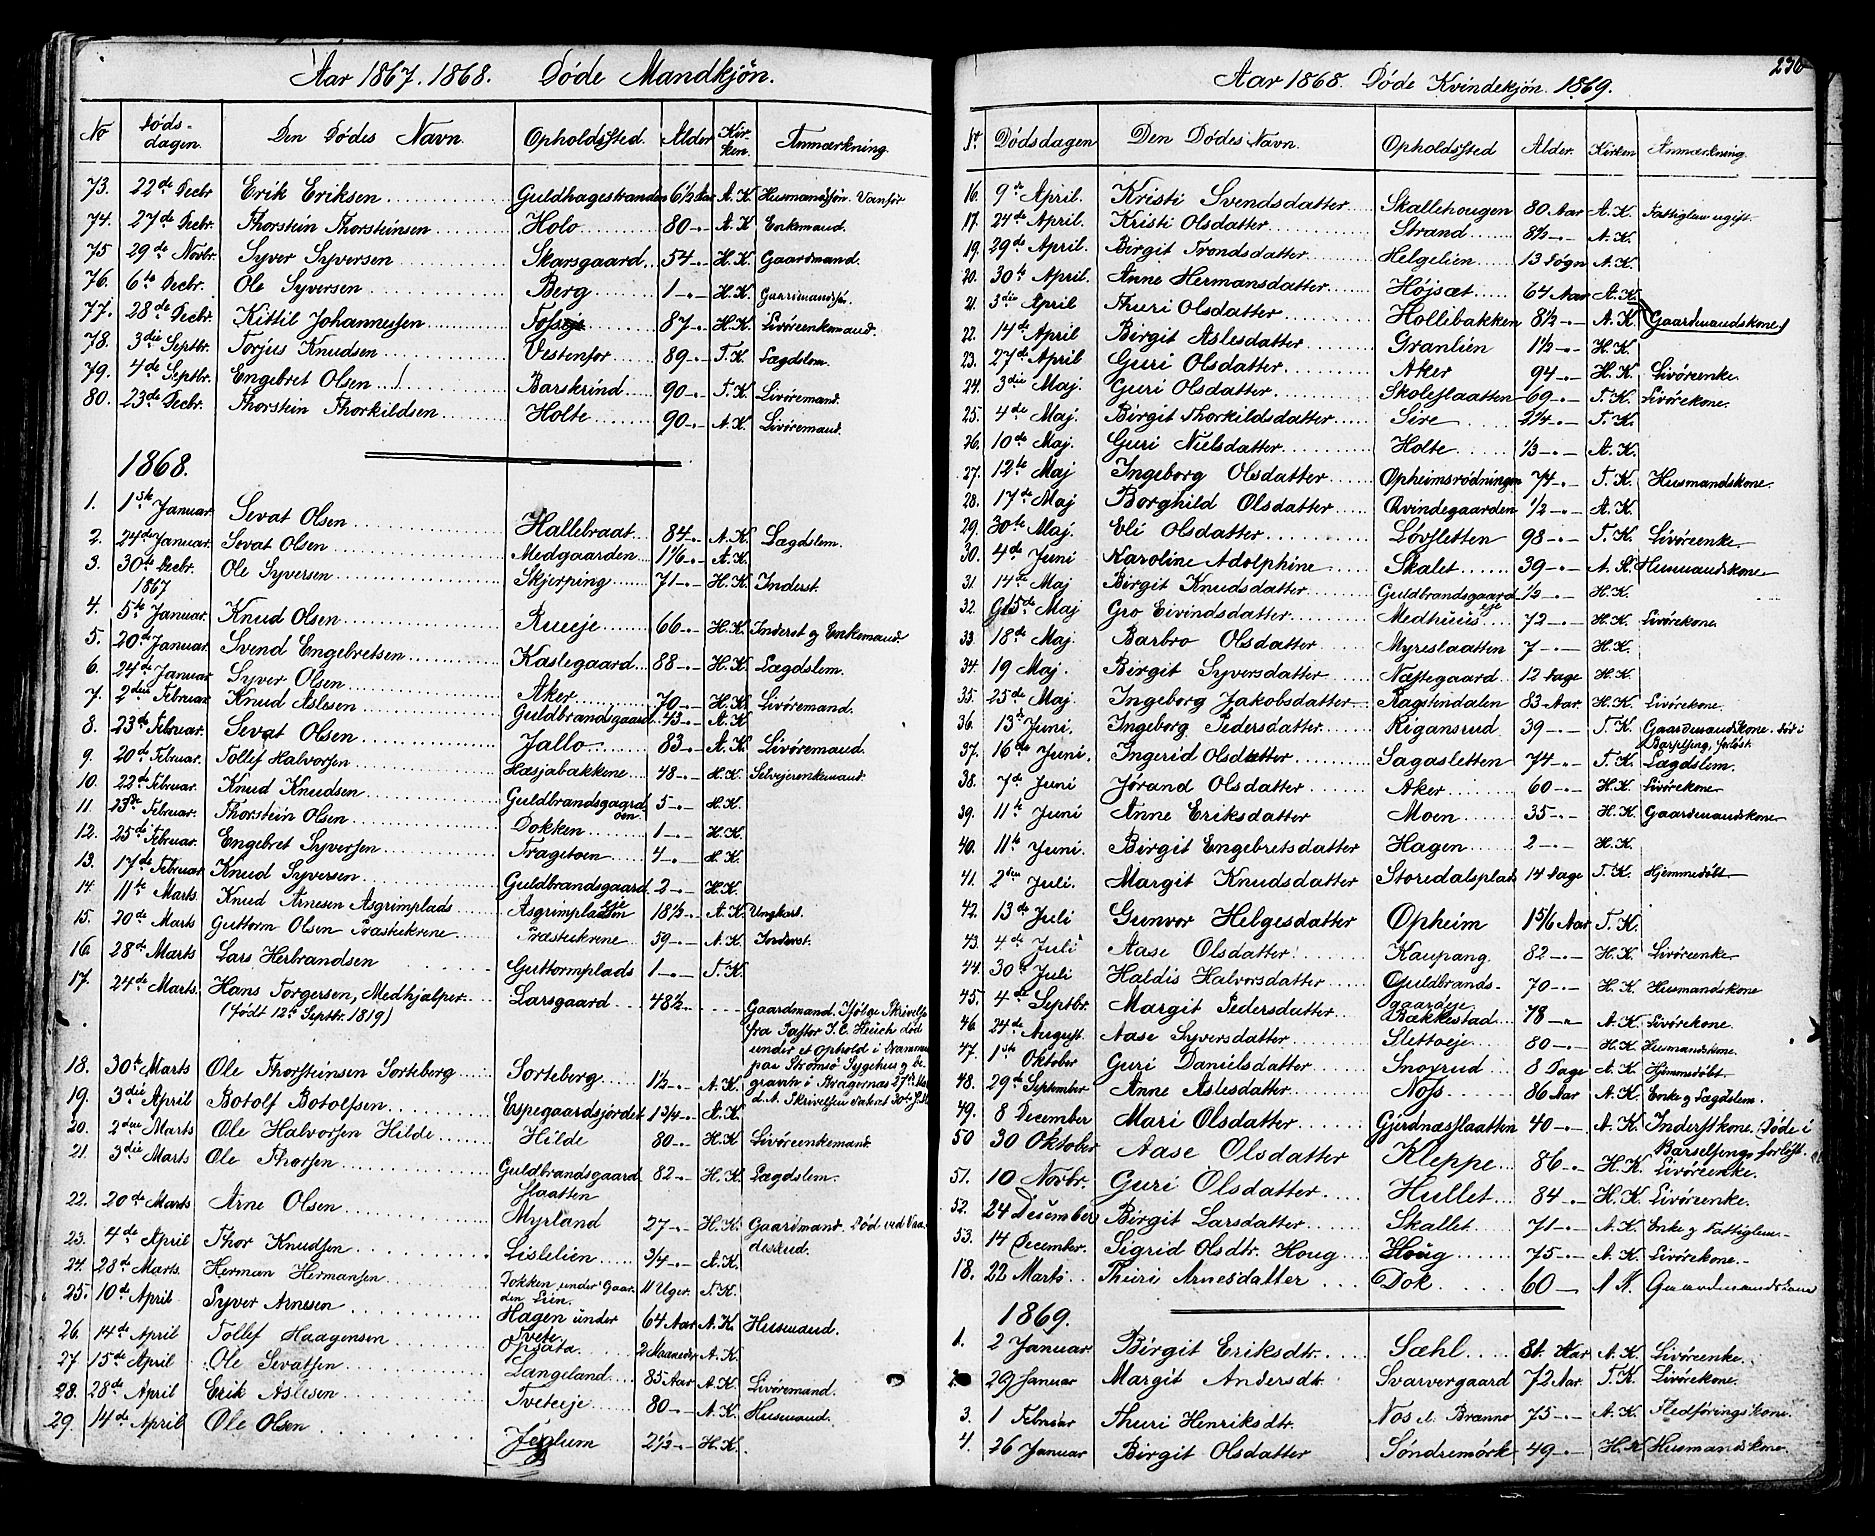 Aar 1867. 1868. Døde Mandkjøn.
No Døds-dagen. Den Dødes Navn. Opholdssted. Alder Kir-ken. Anmærkning.
73. 22de Decbr. Erik Eriksen Guldhagestranden 6½ Aar A. K. Husmandssøn Vanfør
74. 27de Decbr. Thorstein Thorsteinsen Holo 80 A. K. Enkemand.
75 29de Novbr. Syver Syversen Skarsgaard 54 H. K. Gaardmand.
76. 6te Decbr. Ole Syversen Berg 1 H. K. Gaardmandssøn.
77. 28de Decbr. Kittil Johannessen 87 H. K. Livøreenkemand.
78. 3die Septbr. Torjus Knudsen Vestenfor 89 T. K. Lægdslem.
79. 4de Septbr. Engebret Olsen Barskrind 90 T. K. Livøremand.
80. 23de Decbr. Thorstein Thorkildsen Holte 90 A. K. Livøremand.
1868.
1. 1ste Januar Sevat Olsen Hallebraat 84 A. K. Lægdslem.
2. 24de Januar. Sevat Olsen Medgaarden 1 1/6 A. K.
3. 30te Decbr. 1867 Ole Syversen Skjerping 71 H. K. Inderst.
4. 5te Januar. Knud Olsen Rueeje 66 H. K. Inderst og Enkemand
5. 20de Januar. Svend Engebretsen Kaslegaard 88 H. K. Lægdslem.
6. 24de Januar Syver Olsen Aker 70 H. K. Livøremand.
7. 2den Februar Knud Aslesen Guldbrandsgaard 43 A. K.
8. 23de Februar. Sevat Olsen Jallo 83 A. K. Livøremand.
9. 20de Februar. Tollef Halvorsen Hæsjabakkene 48 H. K. Selvejerenkemand.
10. 22de Februar. Knud Knudsen Guldbrandsgaard 5 H. K.
11. 23de Februar. Thorstein Olsen Dokken 1 H. K.
12. 25de Februar. Engebret Syversen Tragetoen 4 H. K.
13. 17de Februar Knud Syversen Guldbrandsgaard 2 H. K.
14. 11te Marts Knud Arnesen Asgrimplads Asgrimpladsen eje 18½ A. K. Ungkarl.
15. 20de Marts Guttorm Olsen Præstekrene Præstekrene 59 A. K. Inderst.
16. 28de Marts Lars Herbrandsen Guttormplads 1 T. K.
17. 24de Marts. Hans Torgersen, Medhjælper Larsgaard 48½ Gaardmand. Ifølge Skrivelse
(født 12te Septbr. 1819) fra Pastor J. C. Heuch død
under et ophold i Drammen
paa Strømsø Sygehus og be-
gravet i Bragernæs 27de Ms
d. A. Skrivelsen dateret 30te
18. 30te Marts Ole Thorsteinsen Sorteberg Sorteberg 1½ A. K.
19. 3die April Botolf Botolfsen Espegaardsjordet 1 3/4 A. K.
20. 2den Marts Ole Halvorsen Hilde Hilde 80 H. K. Livøreenkemand
21. 3die Marts Ole Thorsen Guldbrandsgaard Slaatten 82 H. K. Lægdslem.
22. 20de Marts Arne Olsen Myrland 27 H. K. Gaardmand. Død ved Vaadeskud.
23. 4de April Thor Knudsen Lislelien 3/4 A. K.
24. 28de Marts. Herman Hermansen Dokken under Gaarden Lien. 11 Uger. T. K.
25. 10de April Syver Arnesen Hagen under Tvete 64 Aar A. K. Husmand.
26. 14de April Tollef Haagensen Opsata 2 Maaneder A. K.
27 15de April Ole Sevatsen Langeland 85 Aar A. K. Livøremand.
28. 28de April Erik Aslesen Tveteeje 80 A. K. Husmand.
29. 14de April Ole Olsen Jeglum 2½ H. K.
Aar 1868. Døde Kvindekjøn. 1869. 236
Nr. Dødsdagen Den Dødes Navn. Opholdssted Alder. Kirken Anmærkning.
16. 9de April. Kristi Svendsdatter Skallehougen 80 Aar A. K. Fattiglem ugift.
17. 24de April. Kristi Olsdatter Strand 8½ A. K.
19. 29de April. Birgit Trondsdatter Helgelien 13 Døgn A. K.
20. 30te April. Anne Hermansdatter Højsæt 64 Aar A. K.
21. 3die April Thuri Olsdatter Hollebakken 8½ A. K. Gaardmandskone
22. 14de April Birgit Aslesdatter Granlien 1½ H. K.
23. 27de April Guri Olsdatter Aker 94 H. K. Livøreenke.
24. 3die Maj Guri Olsdatter Skoleslaatten 69 T. K. Livørekone.
25. 4de Maj. Birgit Thorkildsdatter Sire 2 1/4 T. K.
26. 10de Maj. Guri Nielsdatter Holte 1/3 A. K.
27. 12te Maj Ingeborg Olsdatter Opheimsrødningen 74 T. K. Husmandskone.
28. 17de Maj Borghild Olsdatter Qvindegaarden 1/2 A. K.
29. 30te Maj. Eli Olsdatter Løvsletten 98 T. K. Livøreenke.
30. 4de Juni Karoline Adolphine Skalet 39 A. K. Husmandskone
31 14de Maj Birgit Knudsdatter Guldbrandsgaard eje 1/2 H. K.
32. 15de Maj Gro Eivindsdatter Medhuus 72 H. K. Livørekone.
33. 18de Maj. Barbro Olsdatter Myreslaatten 7 H. K.
34. 19 Maj. Birgit Syversdatter Næstegaard 12 Dage H. K.
35. 25de Maj Ingeborg Jakobsdatter Ragstendalen 83 Aar. H. K. Livørekone.
36. 13de Juni. Ingeborg Pedersdatter Rigansrud 39 T. K. Gaardmandskone. Død i Barselseng, forløst.
37. 16de Juni. Ingerid Olsdatter Sagasletten 74 T. K. Lægdslem.
38. 7de Juni Jørand Olsdatter Aker 60 H. K. Livørekone
39. 11te Juni Anne Eriksdatter Moen 35 H. K. Gaardmandskone
40. 11te Juni. Birgit Engebretsdatter Hagen 2 H. K.
41. 2den Juli. Margit Knudsdatter Storedalsplads 14 Dage T. K. Hjemmedøbt
42. 13de Juli Gunvor Helgesdatter Opheim 1 5/6 Aar T. K.
43. 4de Juli Aase Olsdatter Kaupang 82 H. K. Livøreenke
44. 30te Juli Haldis Halvorsdatter Guldbrands-gaardeje 70 H. K. Husmandskone
45. 4de Septbr. Margit Pedersdatter Bækkestad 78 A. K. Livørekone.
46. 24de August. Aase Syversdatter Slettoeje 80 H. K. Husmandskone.
47. 1ste Oktober Guri Danielsdatter Snoyrud 8 Dage A. K. Hjemmedøbt.
48. 29de September Anne Aslesdatter Noss 86 Aar A. K. Enke og Lægdslem.
49. 8 December Mari Olsdatter Gjerdnæsslaatten 40 A. K. Inderstkone. Døde i Barselseng forløst.
50 30 Oktober Aase Olsdatter Kleppe 86 H. K. Livøreenke.
51. 10 Novbr. Guri Olsdatter Hullet 84 H. K. Livøreenke.
52. 24 December Birgit Larsdatter Skallet 71 A. K. Enke og Fattiglem
53. 14 December. Sigrid Olsdtr. Houg Houg 75 A. K. Livørekone.
18. 22 Marts Thuri Arnesdatter Dok 60 A K. Gaardmandskone
1869.
1. 2 Januar Birgit Eriksdtr. Sæhl 81 Aar A. K. Livøreenke.
2. 29 Januar Margit Andersdtr. Svarvergaard 72 Aar. T. K. Livørekone.
3. 1 Februar Thuri Henriksdtr. Nos d. Brænno 75 A. K. Fledføringskone.
4. 26 Januar Birgit Olsdatter Søndremørk 49 H. K Husmandskone.